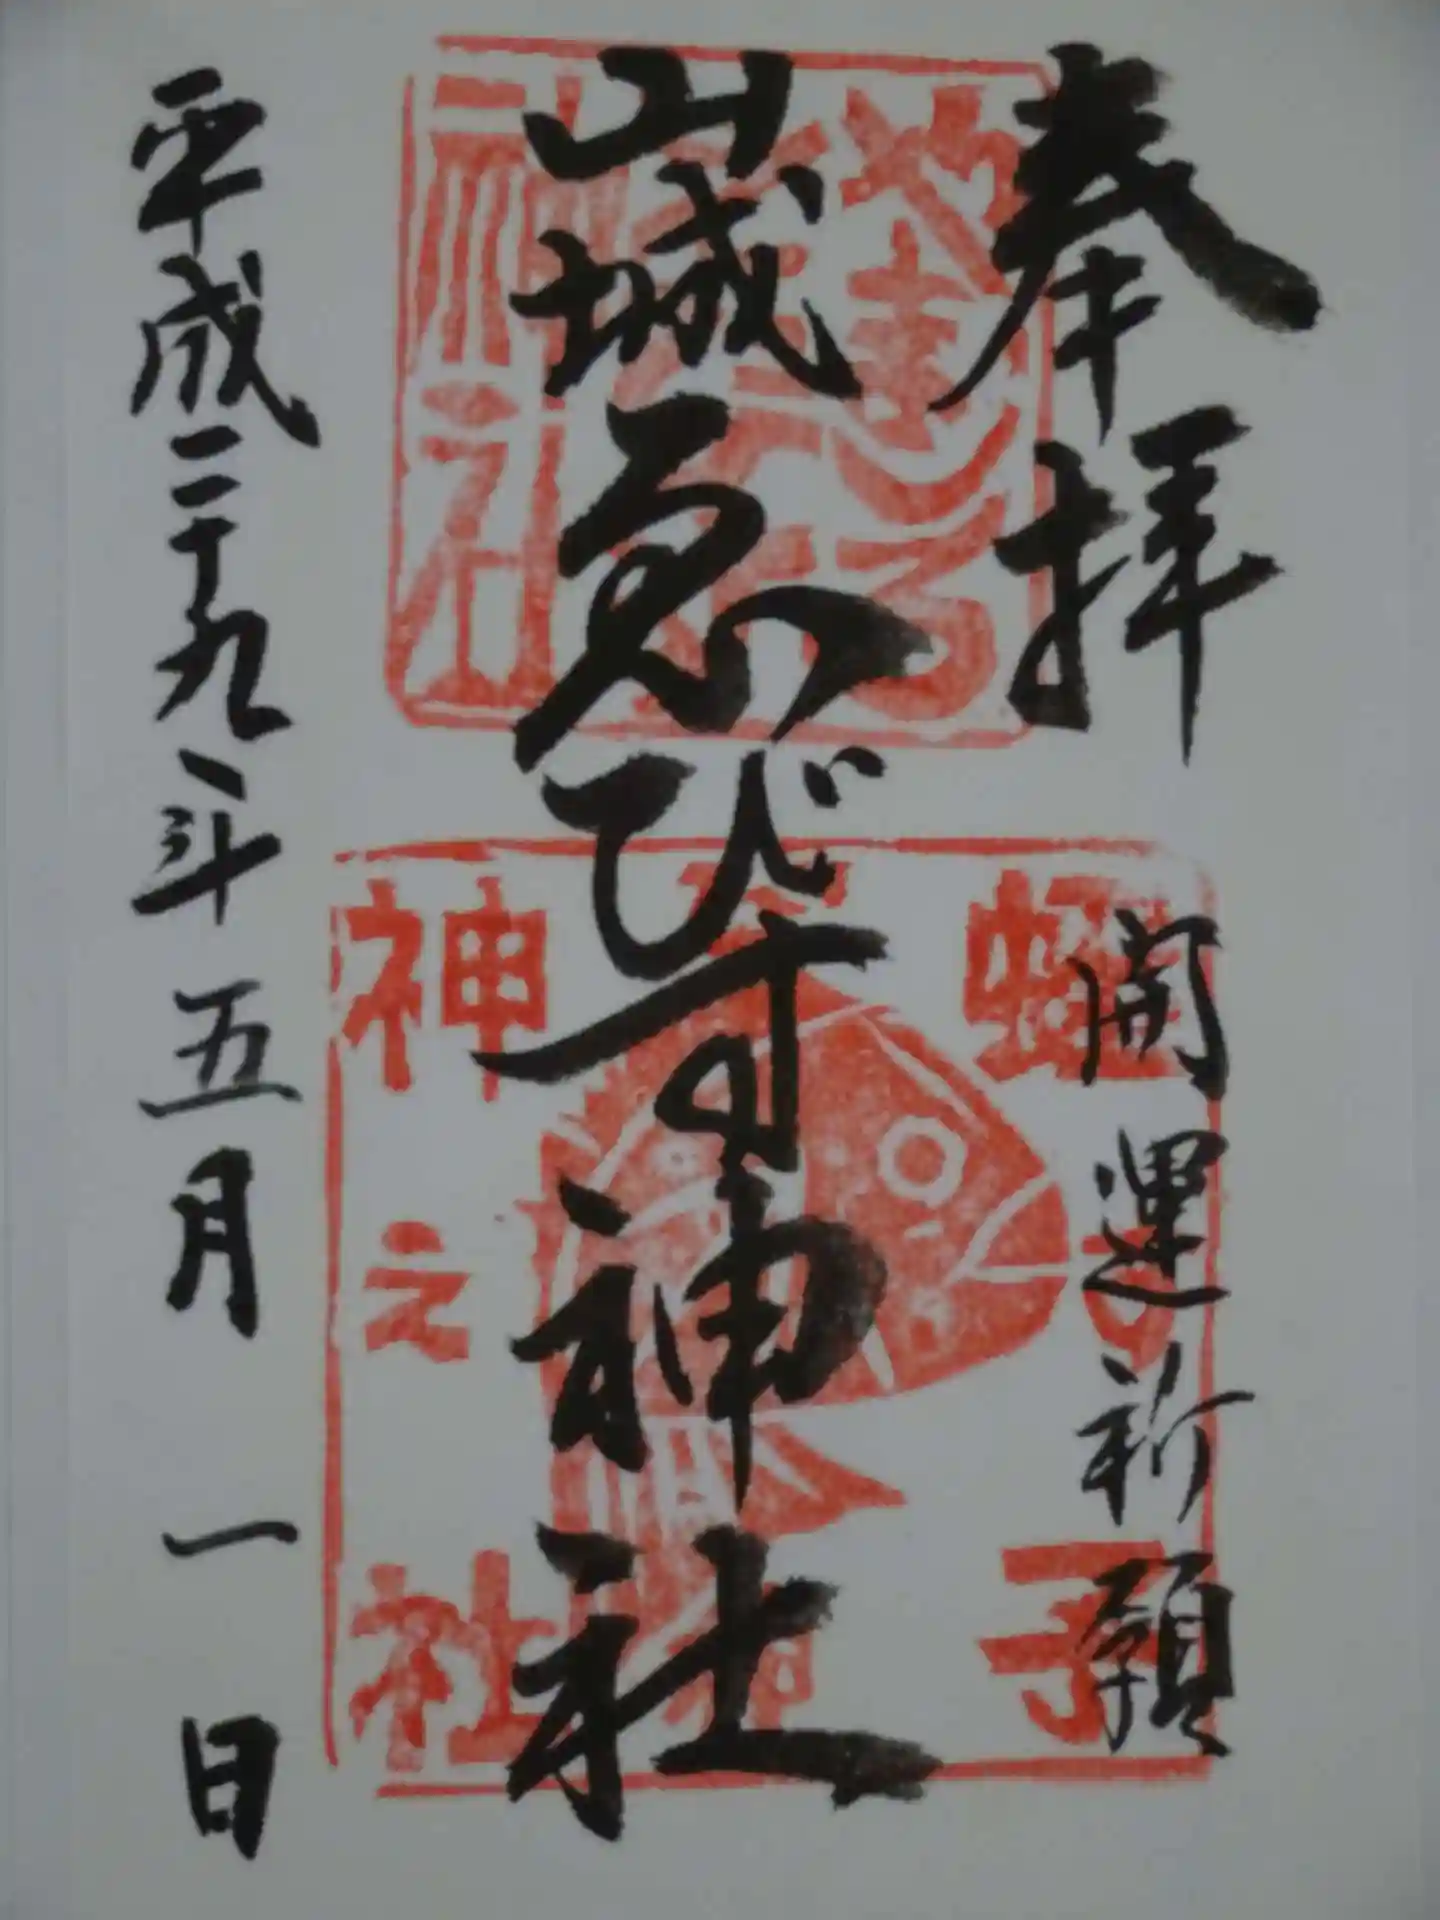 奉拝
開運祈願
山城ゑびす神社
平成二十九年五月一日
神社
蛭子
神之社